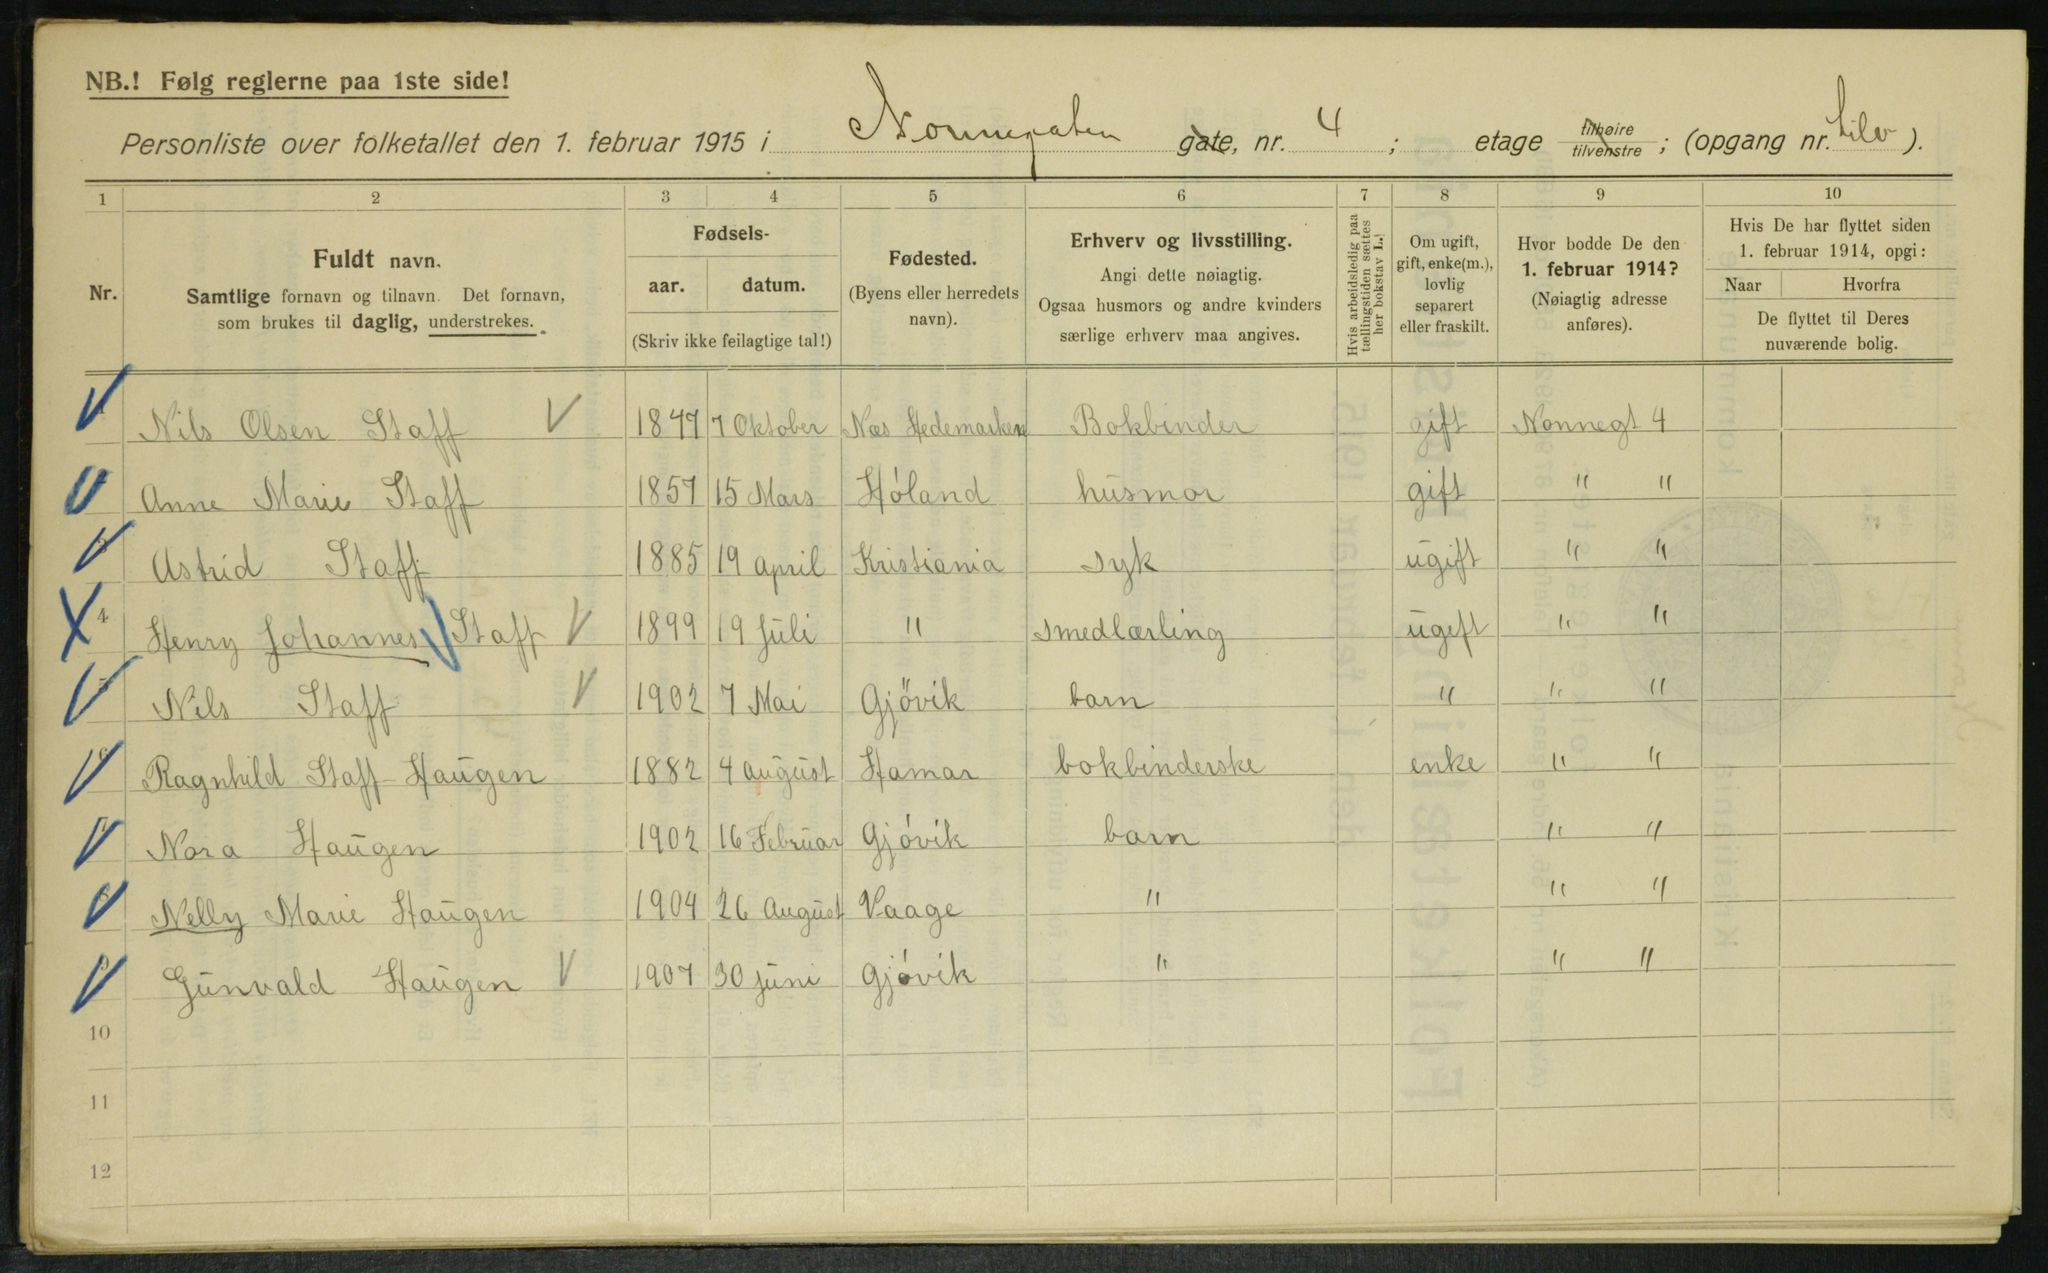 NB.! Følg reglerne paa 1ste side!
Personliste over folketallet den 1. februar 1915 i Nonnegaten gate, nr. 4 ; etage tilhøire tilvenstre ; (opgang nr. tilv ).
1 2 3 4 5 6 7 8 9 10
Nr.
Fuldt navn.
Samtlige fornavn og tilnavn. Det fornavn,
som brukes til daglig, understrekes.
Fødsels-
aar. datum.
(Skriv ikke feilagtige tal!)
Fødested.
(Byens eller herredets
navn).
Erhverv og livsstilling.
Angi dette nøiagtig.
Ogsaa husmors og andre kvinders
særlige erhverv maa angives.
Hvis arbeidsledig paa
tællingstiden sættes
her bokstav L.
Om ugift,
gift, enke(m.),
lovlig
separert
eller fraskilt.
Hvor bodde De den
1. februar 1914?
(Nøiagtig adresse
anføres).
Hvis De har flyttet siden
1. februar 1914, opgi:
Naar Hvorfra
De flyttet til Deres
nuværende bolig.
Nils Olsen Staff 1847 7 Oktober Næs Hedemarken Bokbinder gift Nonnegt 4
Anne Marie Staff 1857 15 Mars Høland husmor gift " "
3 Astrid Staff 1885 19 april Kristiania syk ugift " "
4 Henry Johannes Staff 1899 19 Juli " smedlærling ugift " "
5 Nils Staff 1902 7 Mai Gjövik barn " " "
6 Ragnhild Staff Haugen 1882 4 august Hamar bokbinderske enke " "
7 Nora Haugen 1902 16 Februar Gjóvik barn " "
8 Nelly Marie Haugen 1904 26 August Vaage " " "
9 Gunvald Haugen 1907 30 juni Gjóvik " " "
10
11
12